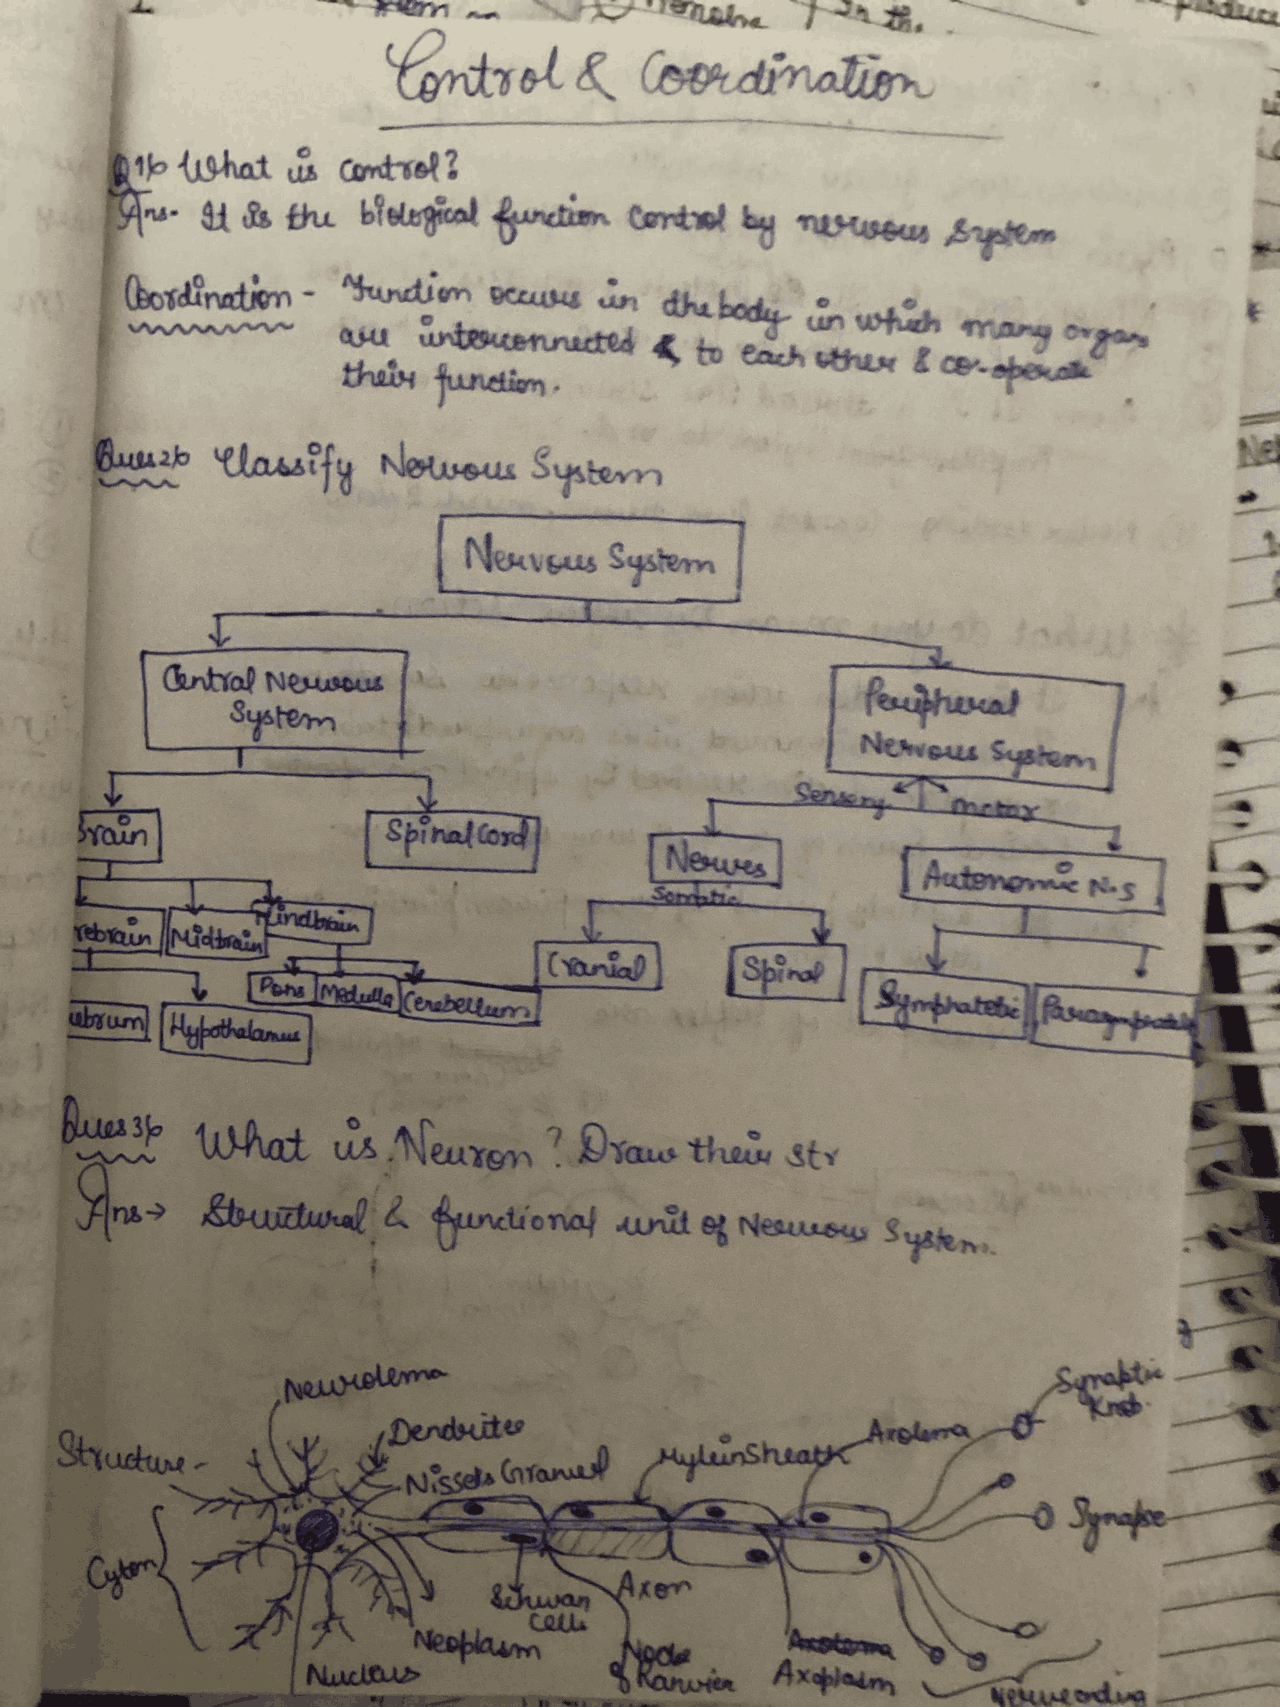 Control & Coordination
Q1% What is control?
Ans- It is the biological function control by nervous system
Coordination - Function occurs in the body in which many organs
are interconnected & to each other & co-operate
their function.
Ques2% Classify Nervous System
Nervous System
Central Nervous
System
Peripheral
Nervous System
Sensory
motor
Brain
Spinal Cord
Nerves
Autonomic N.S
Somatic
rebrain
Midbrain
Hindbrain
Cranial
Spinal
Symphatetic
Pons
Medulla
Cerebellum
ebrum
Hypothalamus
Ques3% What is Neuron? Draw their str
Ans→ Structural & functional unit of Nervous System.
Structure -
Neurolema
Dendrites
Nissels Granuel
Myleinsheath
Axolema
Synaptic
Knob.
Synapse
Cyton
Schwan
cells
Axon
Neoplasm
Nucleus
Node
of Ranvier
Axolema
Axoplasm